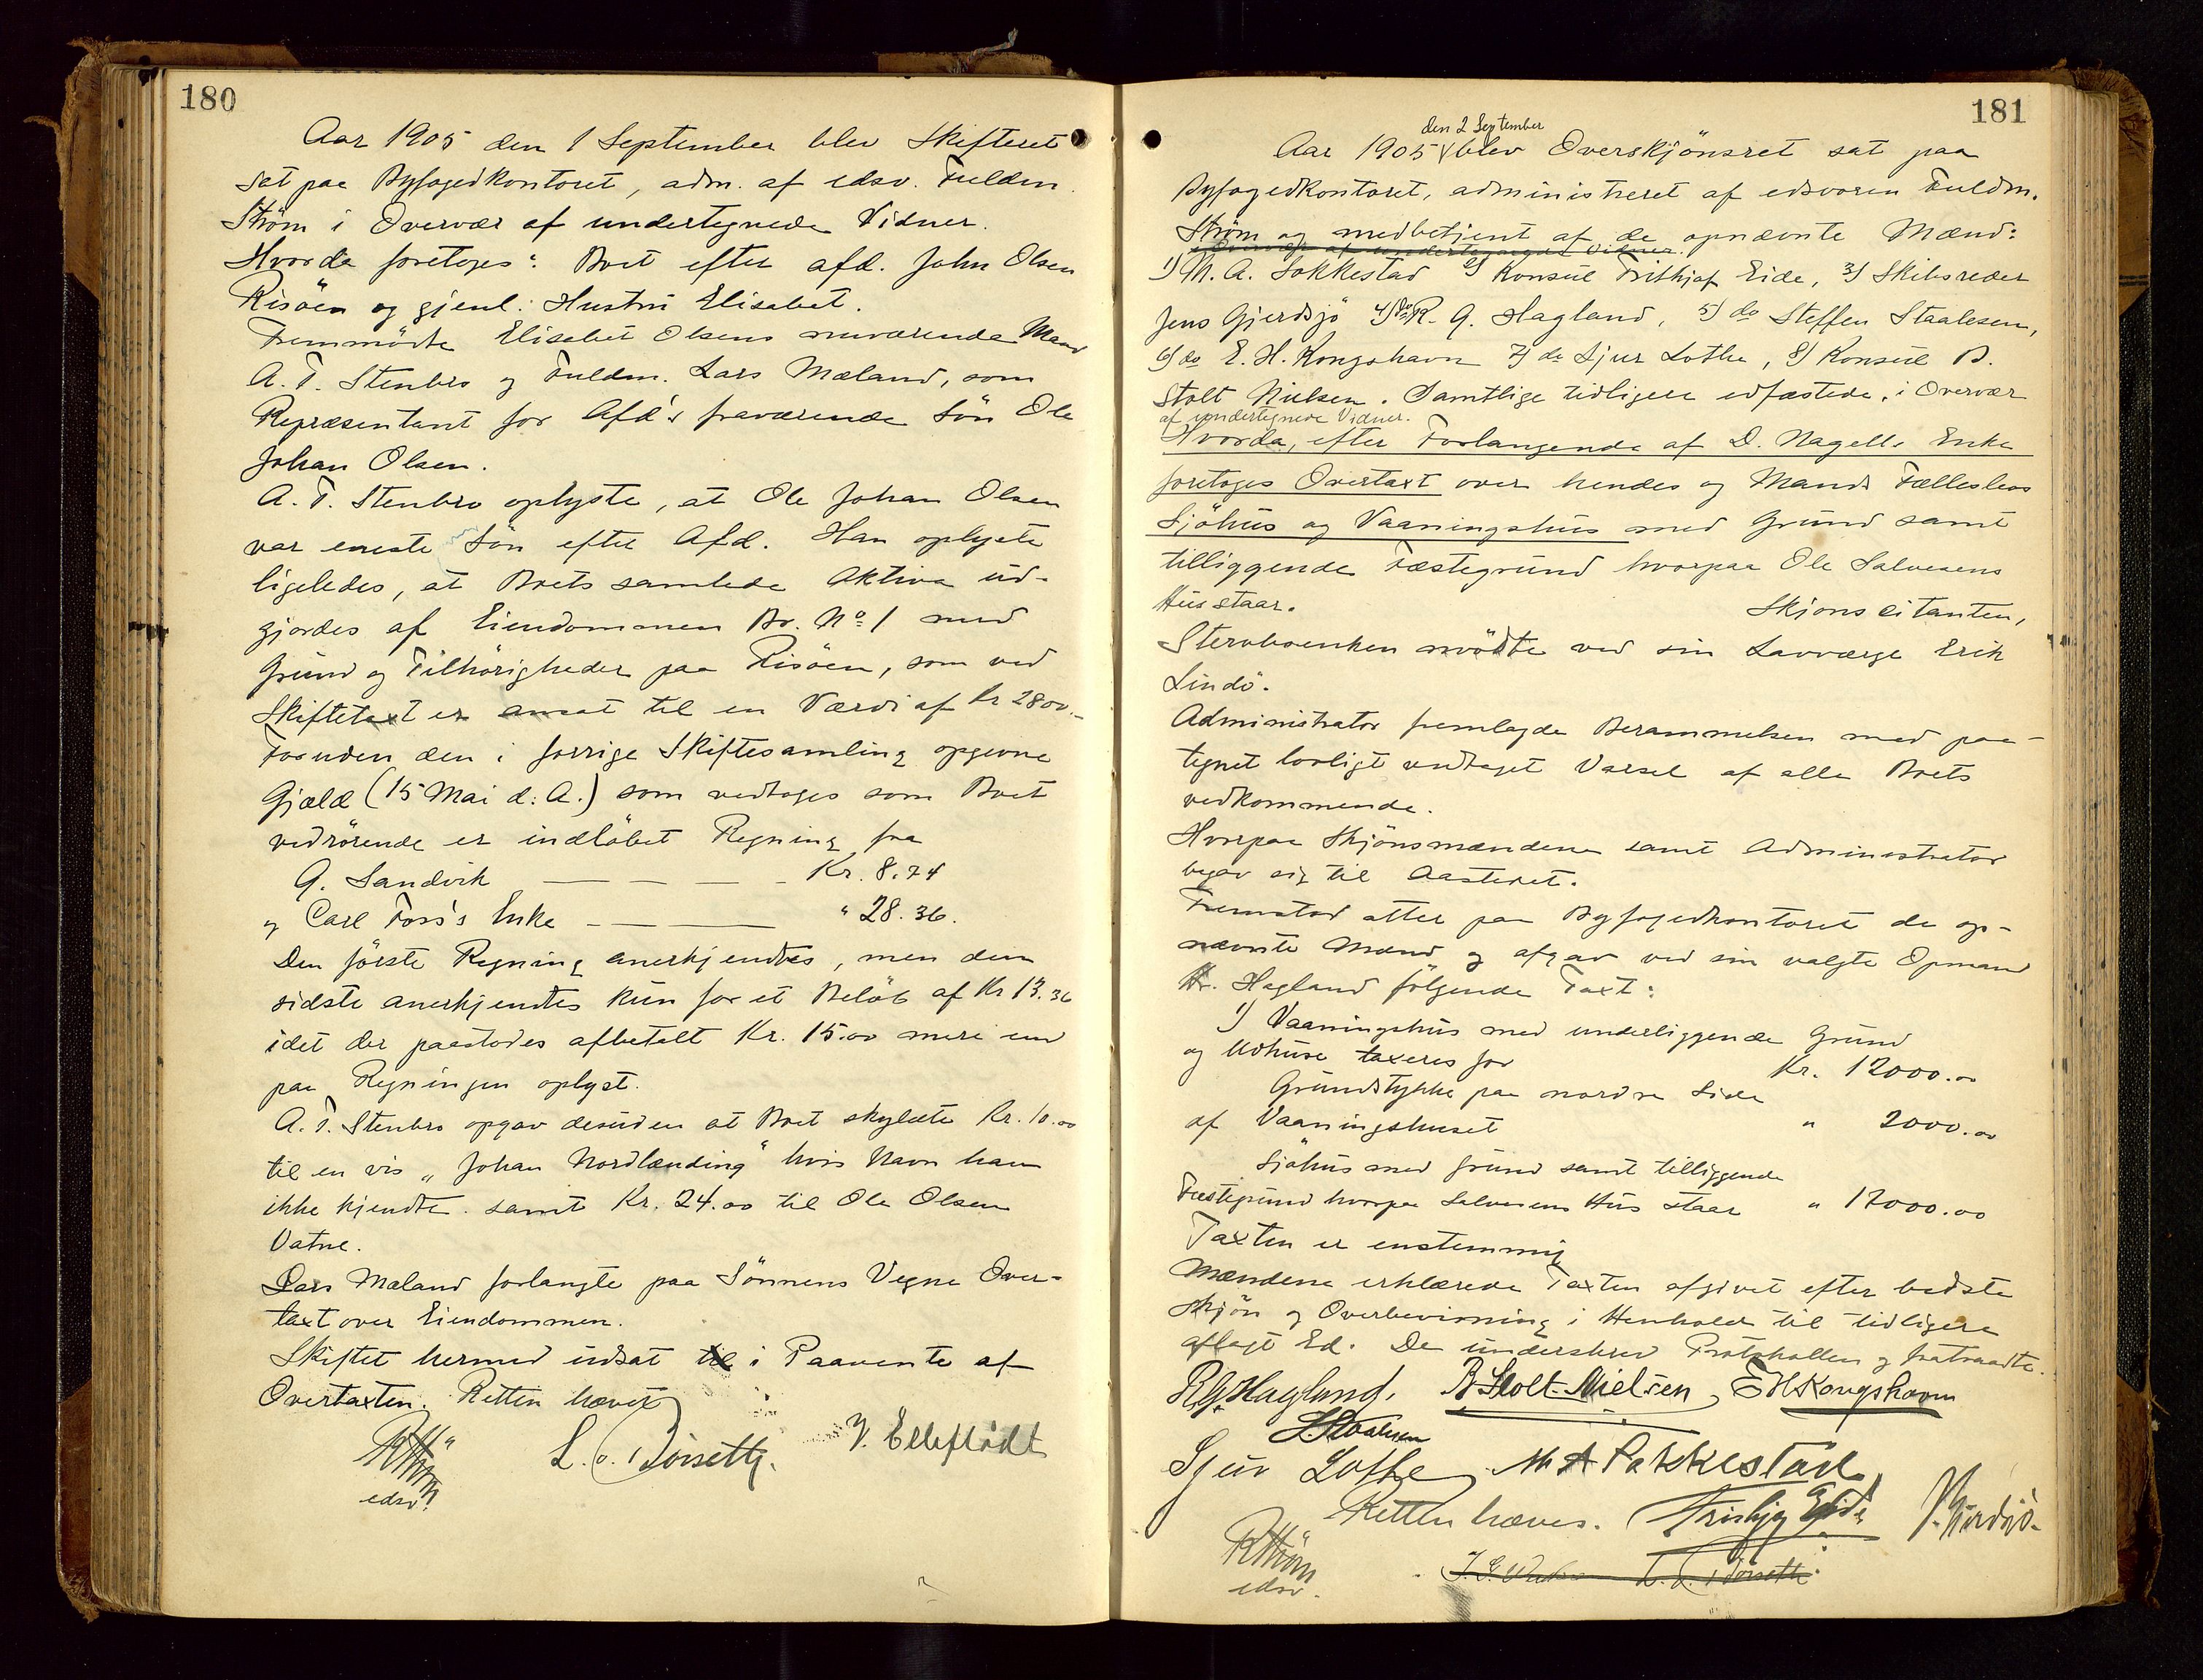 180
Aar 1905 den 1 September blev Skifteret
sat paa Byfogedkontoret, adm. af edsv. Fuldm.
Strøm i Overvær af undertegnede Vidner.
Hvorda foretoges: Boet efter afd. John Olsen
Risøen og gjenl. Hustru Elisabet.
Fremmødte Elisabet Olsens nuværende Mand
A. T. Stenbro og Fuldm. Lars Mæland, som
Repræsentant for Afd's fraværende Søn Ole
Johan Olsen.
A. T. Stenbro oplyste, at Ole Johan Olsen
var eneste Søn efter Afd. Han oplyste
ligeledes, at Boets samlede Aktiva ud-
gjordes af Eiendommen Br. No 1 med
Grund og Tilhørigheder paa Risøen, som ved
Skiftetaxt er ansat til en Værdi af Kr 2800.-
Foruden den i forrige Skiftesamling opgivne
Gjæld (15 Mai d. A.) som vedtoges som Boet
vedrørende er indløbet Regning fra
G. Sandvik — — — Kr. 8.74
og Carl Foss's Enke — — — " 28.36.
Den første Regning anerkjendtes, men den
sidste anerkjendtes kun for et Beløb af Kr 13.36
idet der paastodes afbetalt Kr. 15.00 mere end
paa Regningen oplyst.
A. T. Stenbro opgav desuden at Boet skyldte Kr. 10.00
til en vis „Johan Nordlænding" hvis Navn han
ikke kjendte. samt Kr. 24.00 til Ole Olsen
Vatne.
Lars Mæland forlangte paa Sønnens Vegne Over-
taxt over Eiendommen.
Skiftet hermed udsat til i Paavente af
Overtaxten. Retten hævet
RStrøm L. O. Dørseth. V. Elleflødt
edsv.
181
den 2 September
Aar 1905 blev Overskjønsret sat paa
Byfogedkontoret, administreret af edsvoren Fuldm.
Strøm og medbetjent af de opnævnte Mænd:
i Overvær af undertegnede Vidner.
1) M. A. Sokkestad 2) Konsul Frithjof Eide, 3) Skibsreder
Jens Gjerdsjø 4) do R. G. Hagland, 5) do Steffen Staalesen,
6) do E. H. Kongshavn 7) do Sjur Lothe, 8) Konsul B.
Stolt Nielsen. Samtlige tidligere edfæstede, i Overvær
af undertegnede Vidner.
Hvorda, efter Forlangende af D. Nagells Enke
foretoges Overtaxt over hendes og Mands Fællesbos
Sjøhus og Vaaningshus med Grund samt
tilliggende Fæstegrund hvorpaa Ole Salvesens
Hus staar. Skjønscitanten,
Stervboenken mødte ved sin Lavværge Erik
Lindø.
Administrator fremlagde Berammelsen med paa-
tegnet lovligt vedtaget Varsel af alle Boets
vedkommende.
Hvorpaa Skjønsmændene samt Administrator
begav sig til Aastedet.
Fremstod atter paa Byfogedkontoret de op-
nævnte Mænd og afgav ved sin valgte Opmand
Hr. Hagland følgende Taxt:
1) Vaaningshus med underliggende Grund
og Udhuse taxeres for Kr. 12000.00
Grundstykke paa nordre Side
af Vaaningshuset " 2000.00
Sjøhus med Grund samt tilliggende
Fæstegrund hvorpaa Salvesens Hus staar " 17000.00
Taxten er enstemmig
Mændene erklærede Taxten afgivet efter bedste
Skjøn og Overbevisning i Henhold til tidligere
aflagt Ed. De underskrev Protokollen og fratraadte.
R. G. Hagland, B. Stolt-Nielsen, E H Kongshavn
S. Staalesen
Sjur Lothe M A Sokkestad
Retten hæves. Frithjof Eide J. Gjerdsjø.
RStrøm L. O. Dørseth
edsv.